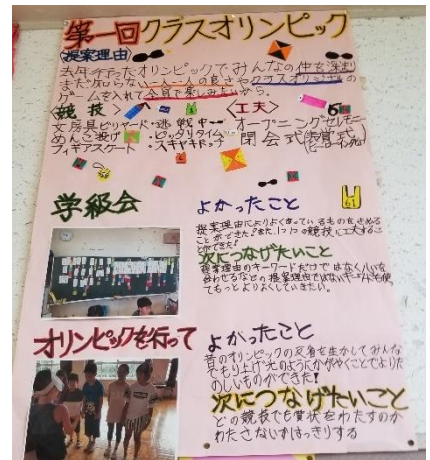 第一回クラスオリンピック
〈提案理由〉
去年行たオリンピックでみんなの仲を深め
まだ知らない一人一人の良さやクラスオリジナルの
ゲームを入れて全員で楽しみたいから。
〈競技〉
〈工夫〉
文房具ビリヤード・逃戦中
めんこ投げ・ピッタリタイム
フィギアスケート・スキヤキドッチ
オープニングセレモニー
閉会式(表賞式)
学級会
よかったこと
提案理由に
ことができた!また、1つ1つの競技に工夫するこ
とができた!
次につなげたいこと
提案理由のキーワードだけではなく
合わせるなどの提案理由ではないキーワードも使
てもっとよりよくしていきたい。
オリンピックを行って
よかったこと
昔のオリンピックの反省を生かしてみんな
でもり上げ光のようにかがやくことでよりた
のしいものができた!
次につなげたいこと
どの競技でも賞状をわたすのか
わたさないずはっきりする
61